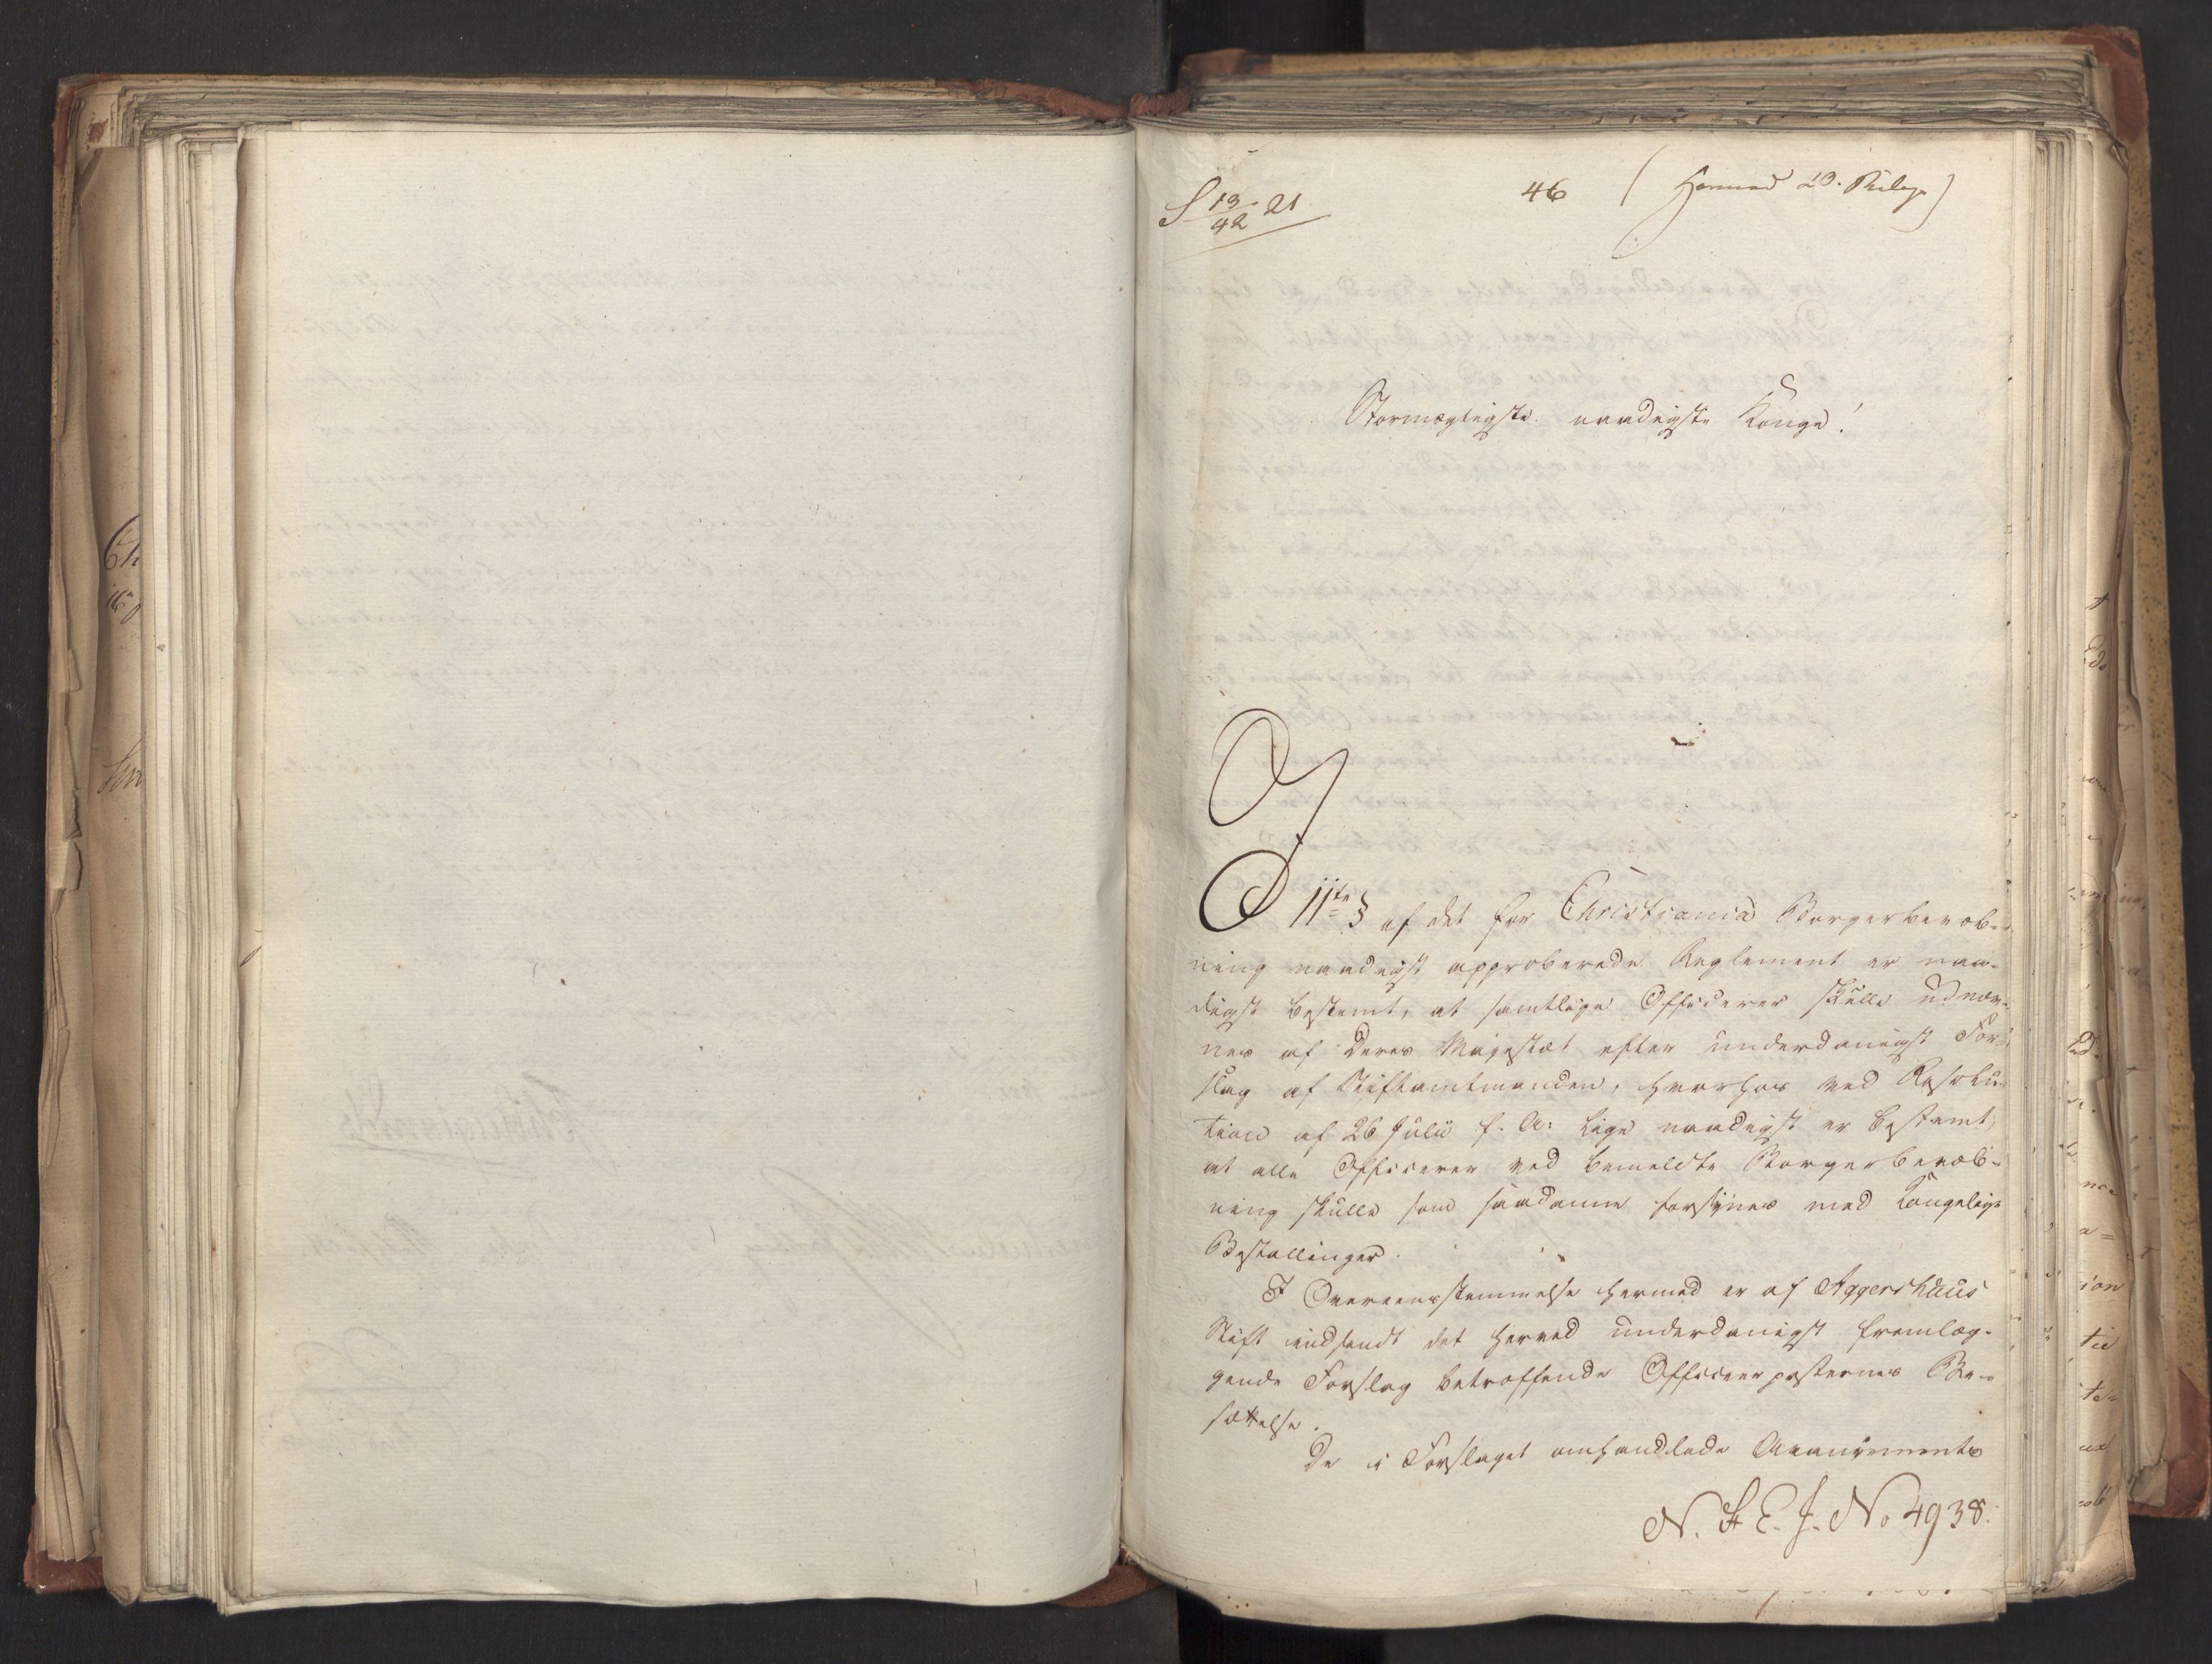 S 13/42 21
46 (Hermed 10. Bilage)
Stormægtigste naadigste Konge!
I 11te § af det for Christiania Borgerbevæb-
ning naadigst approberede Reglement er naa-
digst bestemt, at samtlige Officerer skulle udnæv-
nes af Deres Majestæt efter underdanigst For-
slag af Stiftamtmanden, hvorhos ved Resolu-
tion af 26 Julii f. A: lige naadigst er bestemt,
at alle Officerer ved bemeldte Borgerbevæb-
ning skulle som saadanne forsynes med Kongelige
Bestallinger.
I Overeensstemmelse hermed er af Aggershuus
Stift indsendt det herved underdanigst fremlæg-
gende Forslag betræffende Officeerposternes Be-
sættelse.
De i Forslaget omhandlede Avancements
N. E. J. No 4938.